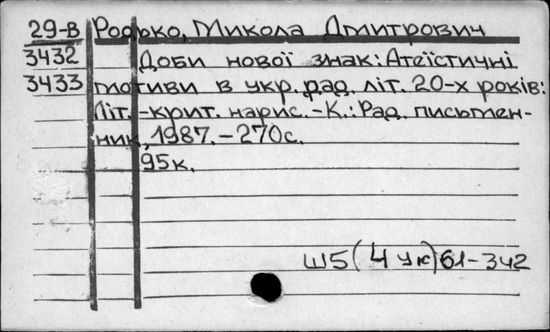 29-В Родько, Микола Дмитрович
3432 Доби нової знак: Атеїстичні
3433 мотиви в укр. рад. літ. 20-х років:
Літ.-крит. нарис. -К.: Рад. письмен-
ник, 1987. - 270с.
95к.
Ш5(4 Ук)61-342